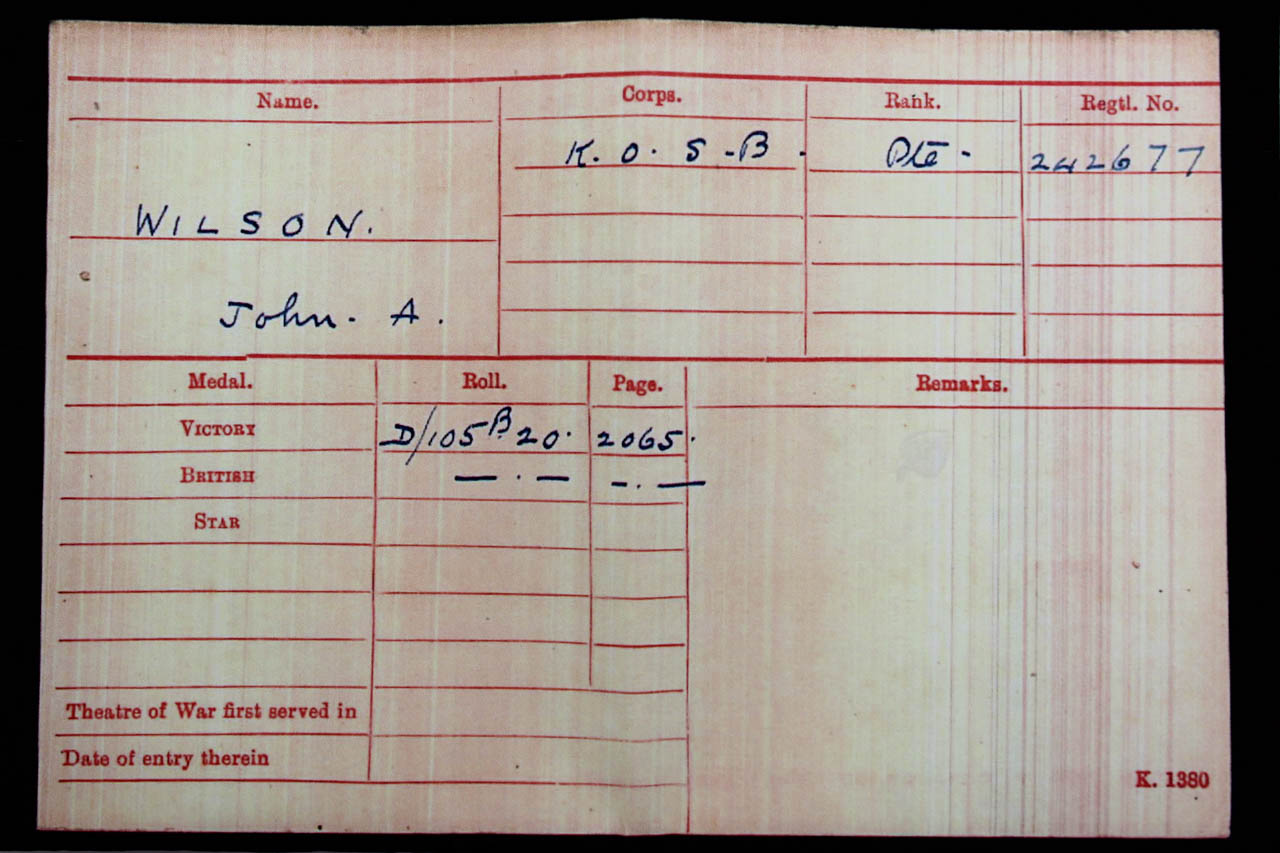 Name. Corps. Rank. Regtl. No.
K. O. S. B. Pte. 242677
WILSON.
John. A.
Medal. Roll. Page. Remarks.
VICTORY D/105 B 20. 2065.
BRITISH — . — — . —
STAR
Theatre of War first served in
Date of entry therein
K. 1380